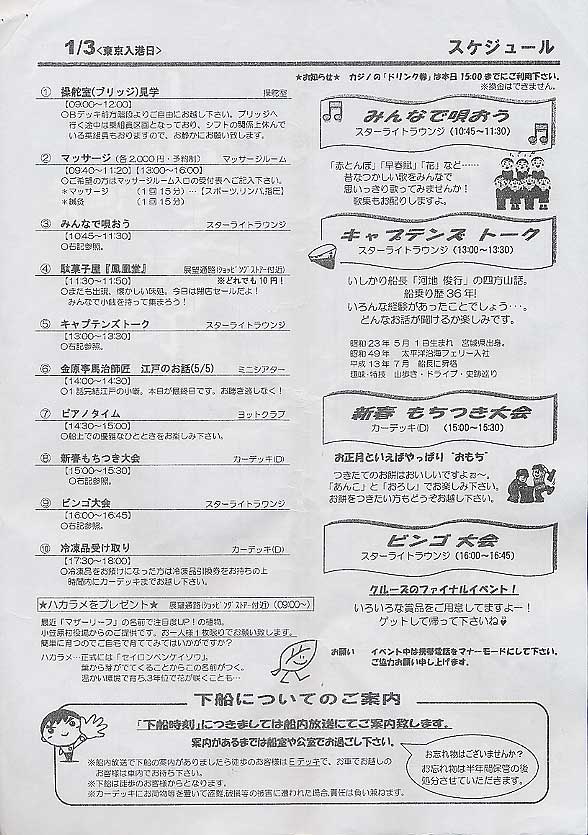 1/3<東京入港日>
スケジュール
★お知らせ★ カジノの「ドリンク券」は本日15:00までにご利用下さい。
※換金はできません。
① 操舵室(ブリッジ)見学 操舵室
【09:00~12:00】
○Bデッキ前方階段よりご自由にお越し下さい。ブリッジへ
行く途中は乗組員区画となっており、シフトの関係上休んで
いる乗組員もおりますので、お静かにお願い致します。
② マッサージ(各2,000円・予約制) マッサージルーム
【09:40~11:20】【13:00~16:00】
○ご希望の方はマッサージルーム入口の受付表へご記入下さい。
*マッサージ (1回15分)…【スポーツ、リンパ、指圧】
*鍼灸 (1回15分)
③ みんなで唄おう スターライトラウンジ
【10:45~11:30】
○右記参照。
④ 駄菓子屋『鳳凰堂』 展望通路(ショッピングストアー付近)
【11:30~11:50】 ※どれでも10円!
○またも出現、懐かしい味処。今日は閉店セールだよ!
みんなで小銭を持って集まろう!
⑤ キャプテンズトーク スターライトラウンジ
【13:00~13:30】
○右記参照。
⑥ 金原亭馬治師匠 江戸のお話(5/5) ミニシアター
【14:00~14:30】
○1話完結江戸の小噺。本日が最終日です。お聴き逃しなく!
⑦ ピアノタイム ヨットクラブ
【14:30~15:00】
○船上での優雅なひとときをお楽しみ下さい。
⑧ 新春もちつき大会 カーデッキ(D)
【15:00~15:30】
○右記参照。
⑨ ビンゴ大会 スターライトラウンジ
【16:00~16:45】
○右記参照。
⑩ 冷凍品受け取り カーデッキ(D)
【17:30~18:00】
○冷凍品をお預けになった方は冷凍品引換券をお持ちの上
時間内にカーデッキまでお越し下さい。
★ハカラメをプレゼント★ 展望通路(ショッピングストアー付近) (09:00~)
最近「マザーリーフ」の名前で注目度UP!の植物。
小笠原村役場からのご提供です。お一人様1枚限りでお願い致します。
簡単に育つのでご自宅で育ててみてはいかがですか?
ハカラメ…正式には「セイロンベンケイソウ」。
葉から芽がでてくることからこの名前がつく。
温かい環境で育ち、3年位で花が咲くことも…
みんなで唄おう
スターライトラウンジ (10:45~11:30)
「赤とんぼ」「早春賦」「花」など……
昔なつかしい歌をみんなで
思いっきり歌ってみませんか!
歌集もお配りしますよ。
キャプテンズ トーク
スターライトラウンジ (13:00~13:30)
いしかり船長「河地 俊行」の四方山話。
船乗り歴36年!
いろんな経験があったことでしょう…。
どんなお話が聞けるか楽しみです。
昭和23年5月1日生まれ 宮城県出身。
昭和49年 太平洋沿海フェリー入社
平成13年7月 船長に昇格
趣味・特技 山歩き・ドライブ・史跡巡り
新春 もちつき大会
カーデッキ(D) (15:00~15:30)
お正月といえばやっぱり“おもち”
つきたてのお餅はおいしいですよぉ~。
「あんこ」と「おろし」でお楽しみ下さい。
お餅をつきたい方もどうぞお越し下さい。
ビンゴ大会
スターライトラウンジ (16:00~16:45)
クルーズのファイナルイベント!
いろいろな賞品をご用意してますよー!
ゲットして帰って下さいね
お願い イベント中は携帯電話をマナーモードにして下さい。
ご協力お願い申し上げます。
下船についてのご案内
「下船時刻」につきましては船内放送にてご案内致します。
案内があるまでは船室や公室でお過し下さい。
※船内放送で下船の案内がありましたら徒歩のお客様はEデッキで、お車でお越しの
お客様は車内でお待ち下さい。
※下船は徒歩のお客様からとなります。
※カーデッキにお荷物等を置いて盗難、破損等の被害に遭われた場合、責任は負い兼ねます。
お忘れ物はございませんか?
お忘れ物は半年間保管の後
処分させていただきます。